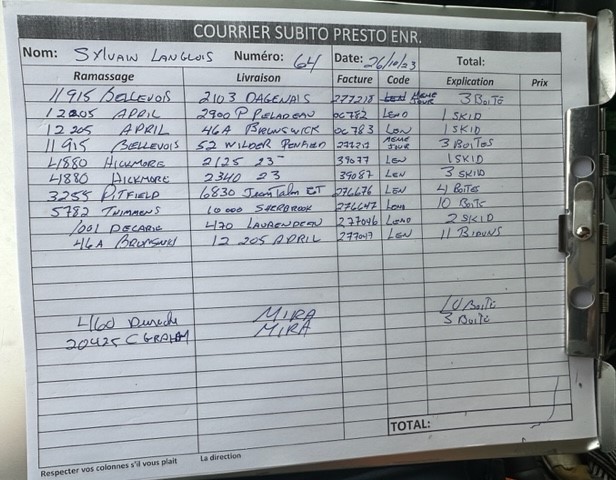 COURRIER SUBITO PRESTO ENR.
Nom: SYLVAIN LANGLOIS Numéro: 64 Date: 26/10/23 Total:
Ramassage Livraison Facture Code Explication Prix
11915 BELLEVOIS 2103 DAGENAIS 277218 MEME JOUR 3 BOITE
12205 APRIL 2900 P PELADEAU 06782 LEMO 1 SKID
12205 APRIL 46A BRUNSWICK 06783 LEN 1 SKID
11915 BELLEVOIS 52 WILDER PENFIELD MEME JOUR 3 BOITES
4880 HICKMORE 2125 23 39077 LEN 1 SKID
4880 HICKMORE 2340 23 39087 LEN 3 SKID
3255 PITFIELD 6830 Jean Talon EST 276676 LEN 4 BOITES
5782 THIMMENS 10 000 SHERBROOK 276647 LEMO 10 BOITE
1001 DECARIE 470 LAURENDEAU 277046 LEMO 2 SKID
46A BRUNSWICK 12 205 APRIL 277047 LEN 11 BIDONS
4160 MIRA 10 BOITE
20425 C GRAHAM MIRA 3 BOITE
TOTAL:
Respecter vos colonnes s'il vous plait La direction